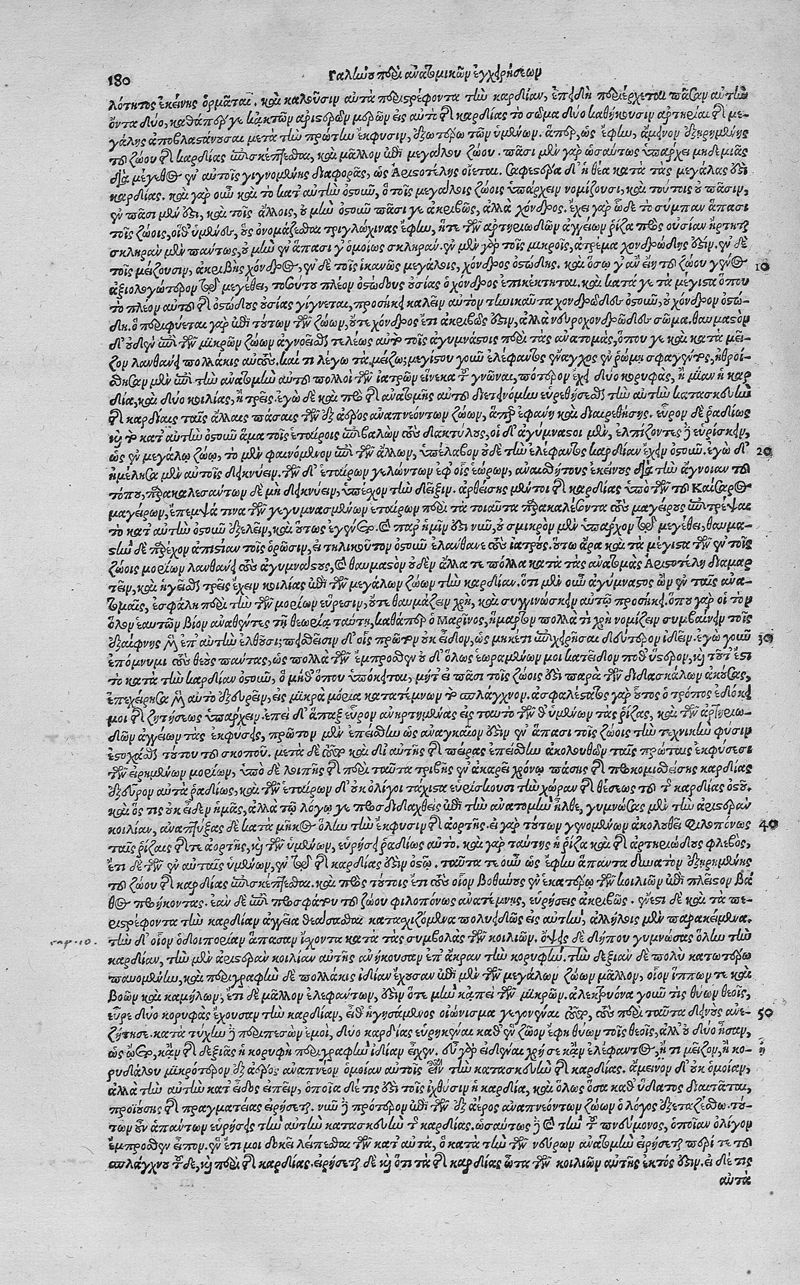 180 Γαλίωοῦ περὶ ἀνατομικῶν ἐγχειρήσεων
λότητος ἐκείνης ὁρμᾶται. καὶ καλοῦσιν αὐτὰ περιστρέφοντα τὴν καρδίαν, ἐπειδὴ περιέρχεται πᾶσαν αὐτὴν
ὄντα δύο, καθάπερ γε κἀκ τῶν ἀριστερῶν μερῶν εἰς αὐτὸ τῆς καρδίας τὸ σῶμα δύο καθήκουσιν ἀρτηρίαι τῆς με-
γάλης ἀποβλαστάνουσαι μετὰ τὴν πρώτην ἔκφυσιν, ἐξωτέρω τῶν ὑμένων. ἅπερ, ὡς ἔφην, ἄμεινον ἐξῃρημένης
τοῦ ζώου τῆς καρδίας ἐπισκέπτεσθαι, καὶ μᾶλλον ἐπὶ μεγάλου ζώου. πᾶσι μὲν γὰρ ὡσαύτως ὑπάρχει μηδεμιᾶς
διὰ μέγεθος ἐν αὐτοῖς γιγνομένης διαφορᾶς, ὡς Ἀριστοτέλης οἴεται. σαφεστέρα δ' ἡ θέα κατὰ τὰς μεγάλας ἐστὶ
καρδίας. καὶ γὰρ οὖν καὶ τὸ κατ' αὐτὴν ὀστοῦν, ὃ τοῖς μεγάλοις ζώοις ὑπάρχειν νομίζουσι, καὶ τούτοις οὐ πᾶσιν,
ἐν πᾶσι μέν ἐστι, καὶ τοῖς ἄλλοις, οὐ μὴν ὀστοῦν πᾶσί γε ἀκριβῶς, ἀλλὰ χόνδρος. ἔχει γὰρ ὧδε τὸ σύμπαν ἅπασι
τοῖς ζώοις, οἱ δ' ὑμένες, οὓς ὀνομάζεσθαι τριγλώχινας ἔφην, ἥ τε τῶν ἀρτηριωδῶν ἀγγείων ῥίζα πρὸς οὐσίαν ἤρτηται
σκληρὰν μὲν πάντως, οὐ μὴν ἐν ἅπασί γ' ὁμοίως σκληράν. ἐν μὲν γὰρ τοῖς μικροῖς, ἀτρέμα χονδρώδης ἐστίν, ἐν δὲ
τοῖς μείζουσιν, ἀκριβὴς χόνδρος, ἐν δὲ τοῖς ἱκανῶς μεγάλοις, χόνδρος ὀστώδης. καὶ ὅσῳ γ' ἂν εἴη τὸ ζῶον γένος 10
ἀξιολογώτερον τῷ μεγέθει, τοσούτῳ πλέον ὀστώδους οὐσίας ὁ χόνδρος ἐπικέκτηται. καὶ κατά γε τὰ μέγιστα ὅπου
τὸ πλέον αὐτοῦ τῆς ὀστώδους οὐσίας γίγνεται, προσήκει καλεῖν αὐτὸν τηνικαῦτα χονδρῶδες ὀστοῦν, οὐ χόνδρον ὀστώ-
δη. ὃ περιφύεται γὰρ ἐπὶ τούτων τῶν ζώων, οὔτε χόνδρος ἔτι ἀκριβῶς ἐστιν, ἀλλὰ νευροχονδρῶδες σῶμα. θαυμαστὸν
δ' οὐδὲν ἐπὶ τῶν μικρῶν ζώων ἀγνοεῖσθαι τελέως αὐτὸ τοῖς ἀγυμνάστοις περὶ τὰς ἀνατομάς, ὅπου γε καὶ κατὰ μεί-
ζον λανθάνει πολλάκις αὐτούς. καί τι λέγω τὰ μείζω; μεγίστου γοῦν ἐλέφαντος ἔναγχος ἐν ῥώμῃ σφαγέντος, ἠθροί-
σθησαν μὲν ἐπὶ τὴν ἀνατομὴν αὐτοῦ πολλοὶ τῶν ἰατρῶν ἕνεκα τοῦ γνῶναι, πότερον ἔχει δύο κορυφάς, ἢ μίαν ἡ καρ-
δία, καὶ δύο κοιλίας, ἢ τρεῖς. ἐγὼ δὲ καὶ πρὸ τῆς ἀνατομῆς αὐτοῦ διετεινόμην εὑρεθήσεσθαι τὴν αὐτὴν κατασκευὴν
τῆς καρδίας ταῖς ἄλλαις πάσαις τῶν ἐξ ἀέρος ἀναπνεόντων ζώων, ἅπερ ἐφάνη καὶ διαιρεθείσης. εὗρον δὲ ῥᾳδίως
καὶ τὸ κατ' αὐτὴν ὀστοῦν ἅμα τοῖς ἑταίροις ἐπιβαλὼν τοὺς δακτύλους, οἱ δ' ἀγύμναστοι μὲν, ἐλπίζοντες δὲ εὑρίσκειν,
ὡς ἐν μεγάλῳ ζώῳ, τὸ μὴν φαινόμενον ἐπὶ τῶν ἄλλων, ὑπέλαβον οὐδὲ τὴν ἐλέφαντος καρδίαν ἔχειν ὀστοῦν. ἐγὼ δ' 20
ἠμέλησα μὲν αὐτοῖς δεικνύειν, τῶν δ' ἑταίρων γελώντων ἐφ' οἷς ἑώρων, ἀναισθήτους ἐκείνους διὰ τὴν ἄγνοιαν τοῦ
τόπου, παρακαλεσάντων δέ με δεικνύειν, ὑπέσχον τὴν δεῖξιν. ἀρθείσης μέντοι τῆς καρδίας ὑπὸ τῶν τοῦ Καίσαρος
μαγείρων, ἔπεμψά τινα τῶν γεγυμνασμένων ἑταίρων περὶ τὰ τοιαῦτα παρακαλέσοντα τοὺς μαγείρους ἐπιτρέψαι
τὸ κατ' αὐτὴν ὀστοῦν ἐξελεῖν, καὶ οὕτως ἐγένετο. καὶ παρ' ἡμῖν ἐστι νῦν, οὐ σμικρὸν μὲν ὑπάρχον τῷ μεγέθει, θαυμα-
στὴν δὲ παρέχον ἀπιστίαν τοῖς ὁρῶσιν, εἰ τηλικοῦτον ὀστοῦν ἔλανθανε τοὺς ἰατρούς. οὕτω ἄρα καὶ τὰ μέγιστα τῶν ἐν τοῖς
ζώοις μορίων λανθάνει τοὺς ἀγυμνάστους, καὶ θαυμαστὸν οὐδὲν ἄλλα τε πολλὰ κατὰ τὰς ἀνατομὰς Ἀριστοτέλη διαμαρ-
τεῖν, καὶ ἡγεῖσθαι τρεῖς ἔχειν κοιλίας ἐπὶ τῶν μεγάλων ζώων τὴν καρδίαν. ὅτι μὲν οὖν ἀγύμναστος ὢν ἐν ταῖς ἀνα-
τομαῖς, ἐσφάλη περὶ τὴν τῶν μορίων εὕρεσιν, οὔτε θαυμάζειν χρὴ, καὶ συγγινώσκειν αὐτῷ προσήκει. ὅπου γὰρ οἱ τὸν
ὅλον ἑαυτῶν βίον ἀναθέντες τῇ θεωρίᾳ ταύτῃ, καθάπερ ὁ Μαρῖνος, ἥμαρτον πολλὰ τί χρὴ νομίζειν συμβαίνειν τοῖς
ἐξαίφνης μὲν ἐπ' αὐτὴν ἐλθοῦσι; πεισθεῖσιν δ' οἷς πρῶτον οὐκ εἶδον, ὡς μηκέτι ἐπιχειρῆσαι δεύτερον ἰδεῖν. ἐγὼ γοῦν 30
ἐπόμνυμι τοὺς θεοὺς πάντας, ὡς πολλὰ τῶν ἔμπροσθεν οὐδ' ὅλως ἑωραμένων μοι κατεῖδον ποθ' ὕστερον. καὶ τοῦτ' ἔστι
τὸ κατὰ τὴν καρδίαν ὀστοῦν, ὃ μήθ' ὅπου ὑπόκειται, μήτ' εἰ πᾶσι τοῖς ζώοις ἐστὶ παρὰ τῶν διδασκάλων ἀκούσας,
ἐπεχείρησα μὲν αὐτὸ ἐξευρεῖν, εἰς μικρὰ μόρια κατατέμνων τὸ σπλάγχνον. ἀσφαλέστατος γὰρ οὗτος ὁ τρόπος ἐδόκει
μοι τῆς ζητήσεως ὑπάρχειν. ἐπεὶ δ' ἅπαξ εὗρον ἀνηρτημένας εἰς ταυτὸ τῶν θ' ὑμένων τὰς ῥίζας, καὶ τῶν ἀρτηριω-
δῶν ἀγγείων τὰς ἐκφύσεις, πρῶτον μὲν ἐπείσθην ὡς ἀναγκαῖον ἐστιν ἐν ἅπασι τοῖς ζώοις τὴν τεχνικὴν φύσιν
ἐστοχάσθαι τούτου τοῦ σκοποῦ. μετὰ δὲ ταῦτα καὶ δι' αὐτῆς τῆς πείρας ἐπείσθην ἀκολουθῶν ταῖς πρώταις ἐκφύσεσι
τῶν εἰρημένων μορίων, ὑπὸ δὲ λοιπῆς τῆς περὶ ταῦτα τριβῆς ἐν ἀκαρεῖ χρόνῳ πάσης τῆς προκομισθείσης καρδίας
ἐξεῦρον αὐτὰ ῥᾳδίως, καὶ τῶν ἑταίρων δ' οὐκ ὀλίγοι τάχιστα εὑρίσκουσι τὴν χώραν τῆς θέσεως τοῦ τῆς καρδίας ὀστοῦ.
καὶ ὅς τις οὐκ εἶδεν ἡμᾶς, ἀλλὰ τῷ λόγῳ γε προσδιδαχθεὶς ἐπὶ τὴν ἀνατομὴν ἦλθε, γυμνώσας μὲν τὴν ἀριστερὰν
κοιλίαν, ἀναπτύξας δὲ κατὰ μῆκος ὅλην τὴν ἔκφυσιν τῆς ἀορτῆς. εἰ γὰρ τούτων γενομένων ἀκολουθεῖ Φιλοπόνως 40
ταῖς ῥίζαις τῆς τε ἀορτῆς, καὶ τῶν ὑμένων, εὑρήσει ῥᾳδίως αὐτό. καὶ γὰρ ταύτης ἡ ῥίζα καὶ τῆς ἀρτηριώδους φλεβὸς,
ἔτι δὲ τῶν ἐν αὐταῖς ὑμένων, ἐν τῷ τῆς καρδίας ἐστὶν ὀστῷ. ταῦτά τε οὖν ὡς ἔφην ἅπαντα δυνατὸν ἐξῃρημένης
τοῦ ζώου τῆς καρδίας ἐπισκέπτεσθαι. καὶ πρὸς τούτοις ἔτι τοὺς οἷον βοθύνους ἐν ἑκατέρῳ τῶν κοιλιῶν ἐπὶ πλεῖστον βά-
θος προήκοντας. ἐὰν δὲ ἐπὶ προσφάτου τοῦ ζώου φιλοπόνως ἀνατέμνῃς, εὑρήσεις ἀκριβῶς. ἔνεστι δὲ καὶ τὰ πε-
ριστρέφοντα τὴν καρδίαν ἀγγεῖα θεάσασθαι κατασχιζόμενα πολυειδῶς εἰς αὐτὴν, ἀλλήλοις μὲν παρακείμενα.
cap. 10. τὴν δ' οἷον ὁδοιπορίαν ἅπασαν ἔχοντα κατὰ τὰς συμβολὰς τῶν κοιλιῶν. ὄψῃ δὲ δήπου γυμνώσας ὅλην τὴν
καρδίαν, τὴν μὲν ἀριστερὰν κοιλίαν αὐτῆς ἀνήκουσαν ἐπ' ἄκραν τὴν κορυφήν. τὴν δεξιὰν δὲ πολὺ κατωτέρω
παυομένην, καὶ περιγραφὴν δὲ πολλάκις ἰδίαν ἔχουσαν ἐπὶ μὲν τῶν μεγάλων ζώων μᾶλλον, οἷον ἵππων τε καὶ
βοῶν καὶ καμήλων, ἔτι δὲ μᾶλλον ἐλεφάντων, ἔστιν ὅτε μὴν κἀπὶ τῶν μικρῶν. ἀλεκτρυόνα γοῦν τις θύων θεοῖς,
εὗρε δύο κορυφὰς ἔχουσαν τὴν καρδίαν, εἶθ' ἡγησάμενος οἰώνισμα γεγονέναι τοῦτο, τοὺς περὶ ταῦτα δεινοὺς ἀνε- 50
ζήτησε. κατὰ τύχην δὲ περιπεσὼν ἐμοί, δύο καρδίας εὑρηκέναι καθ' ἓν ζῶον ἔφη θύων τοῖς θεοῖς, ἀλλ' οὐ δύο ἦσαν,
ὡς ᾤετο, κἂν τῆς δεξιᾶς ἡ κορυφὴ περιγραφὴν ἰδίαν εἶχεν. εὖ γὰρ εἰδέναι χρή σε κἂν ἐλέφαντος, ἤ τι μεῖζον, ἢ κο-
ρυδάλου μικρότερον ἐξ ἀέρος ἀναπνέον ὁμοίαν αὐτοῖς εἶναι τὴν κατασκευὴν τῆς καρδίας. ἄμεινον δ' οὐκ ὁμοίαν,
ἀλλὰ τὴν αὐτὴν κατ' εἶδος ἐπεῖν, ὁποία δέ τις ἐστὶ τοῖς ἰχθύσιν ἡ καρδία, καὶ ὅλως ὅσα καθ' ὕδατος διαιτᾶται,
προϊούσης τῆς πραγματείας εἰρήσεται. νῦν δὲ πρότερον ἐπὶ τῶν ἐξ ἀέρος ἀναπνεόντων ζώων ὁ λόγος ἐξεταζέσθω. τού-
των οὖν ἁπάντων εὑρήσεις τὴν αὐτὴν κατασκευὴν τῆς καρδίας. ὡσαύτως δὲ καὶ τὴν τοῦ πνεύμονος, ὁποίαν ὀλίγον
ἔμπροσθεν εἶπον. ἓν ἔτι μοι δοκεῖ λείπεσθαι τῶν κατ' αὐτά, ὃ κατὰ τὴν τῶν νεύρων ἀνατομὴν εἰρήσεται περί τε τοῦ
σπλάγχνου τοῦδε, καὶ περὶ τῆς καρδίας. εἰρήσεται δὲ καὶ ὅτι τὰ τῆς καρδίας ὦτα τῶν κοιλιῶν αὐτῆς ἐκτός ἐστιν. εἰ δέ τις
αὐτὰ